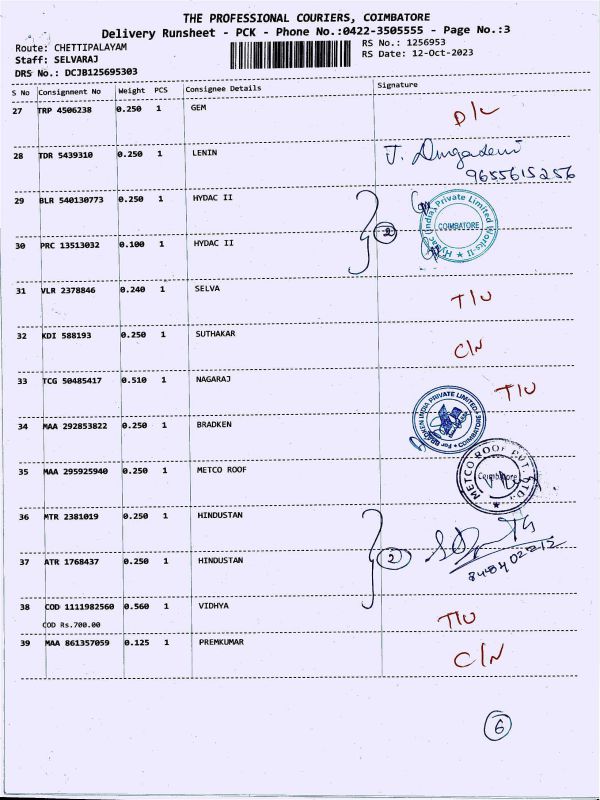 THE PROFESSIONAL COURIERS, COIMBATORE
Delivery Runsheet - PCK - Phone No.:0422-3505555 - Page No.:3
Route: CHETTIPALAYAM
RS No.: 1256953
Staff: SELVARAJ
RS Date: 12-Oct-2023
DRS No.: DCJB125695303
S No Consignment No Weight PCS Consignee Details Signature
27 TRP 4506238 0.250 1 GEM D/L
28 TDR 5439310 0.250 1 LENIN J. Durgadevi
9655615256
29 BLR 540130773 0.250 1 HYDAC II
30 PRC 13513032 0.100 1 HYDAC II 2
Hydac (India) Private Limited Works-II
COIMBATORE
31 VLR 2378846 0.240 1 SELVA T/U
32 KDI 588193 0.250 1 SUTHAKAR C/N
33 TCG 50485417 0.510 1 NAGARAJ T/U
34 MAA 292853822 0.250 1 BRADKEN
For BRADKEN INDIA PRIVATE LIMITED COIMBATORE
35 MAA 295925940 0.250 1 METCO ROOF
METCO ROOF PVT. LTD.
Coimbatore
36 MTR 2381019 0.250 1 HINDUSTAN
37 ATR 1768437 0.250 1 HINDUSTAN 2
38 COD 1111982560 0.560 1 VIDHYA T/U
COD Rs.700.00
39 MAA 861357059 0.125 1 PREMKUMAR C/N
6